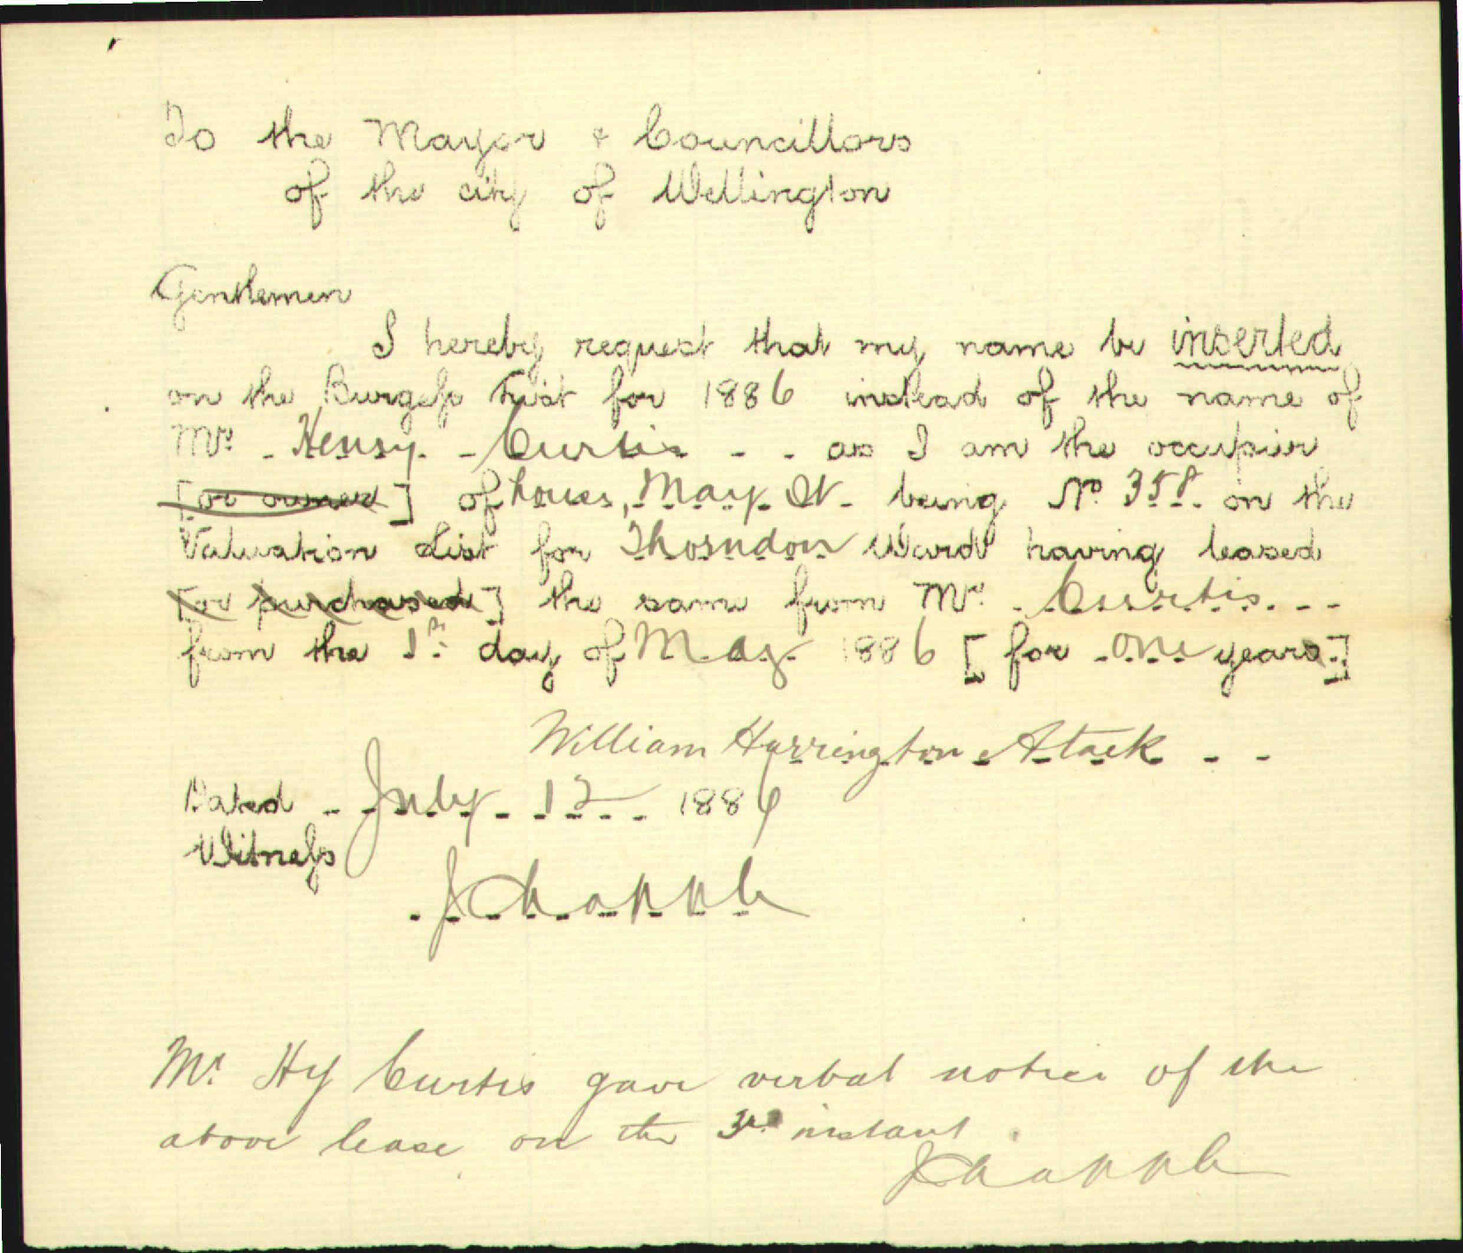 To the Mayor & Councillors
of the city of Wellington
Gentlemen
I hereby request that my name be inserted
on the Burgess List for 1886 instead of the name of
Mr. Henry Curtis as I am the occupier
[or owner] of house, May St. being No. 358 on the
Valuation List for Thorndon Ward having leased
[or purchased] the same from Mr. Curtis
from the 1st day of May 1886 [for one years]
William Harrington Atack
Dated July 12 1886
Witness
J Chapple
Mr. Hy Curtis gave verbal notice of the
above lease on the 3rd instant.
J Chapple